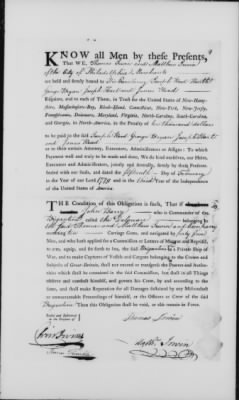 KNOW all Men by these Presents,
That WE, Thomas Irwin and Matthew Irwin
of the City of Philadelphia Merchants
are held and firmly bound to His Excellency Joseph Reed
George Bryan Joseph Hart and James Read
Esquires, and to each of them, in Trust for the United States of New-Hampshire,
Massachusetts-Bay, Rhode-Island, Connecticut, New-York, New-Jersey,
Pennsylvania, Delaware, Maryland, Virginia, North-Carolina, South-Carolina,
and Georgia, in North-America, in the Penalty of ten thousand dollars
to be paid to the said Joseph Reed George Bryan Joseph Hart
and James Read
or to their certain Attorney, Executors, Administrators or Assigns: To which
Payment well and truly to be made and done, We do bind ourselves, our Heirs,
Executors and Administrators, jointly and severally, firmly by these Presents.
Sealed with our Seals, and dated the fifteenth Day of February
in the Year of our Lord 1779 and in the third Year of the Independence
of the United States of America.
THE Condition of this Obligation is such, That if
John Barry who is Commander of the
Brigantine called the Delaware belonging to
Thomas and Matthew Irwin and Company
mounting ten Carriage Guns, and navigated by forty five
Men, and who hath applied for a Commission or Letters of Marque and Reprisal,
to arm, equip, and set forth to sea, the said Brigantine as a Private Ship of
War, and to make Captures of Vessels and Cargoes belonging to the Crown and
Subjects of Great-Britain, shall not exceed or transgress the Powers and Authorities
which shall be contained in the said Commission, but shall in all Things
observe and conduct himself, and govern his Crew, by and according to the
same, and shall make Reparation for all Damages sustained by any Misconduct
or unwarrantable Proceedings of himself, or the Officers or Crew of the said
Brigantine Then this Obligation shall be void, or else remain in Force.
Sealed and Delivered in the
Presence of
Thomas Irwin
Matth. Irwin